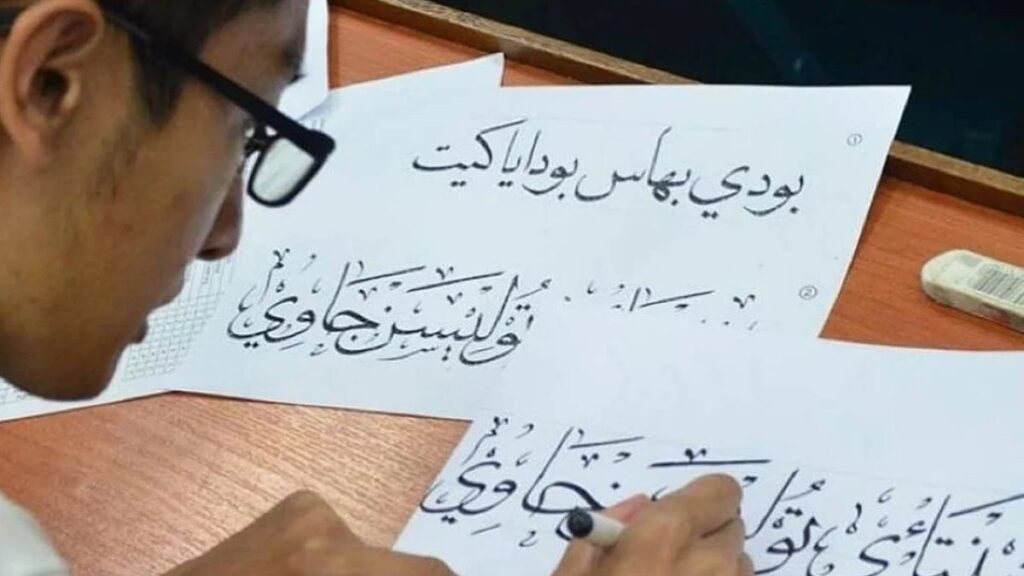 بودي بهاس بودايا كيت ①
توليسن جاوي ②
جاوي